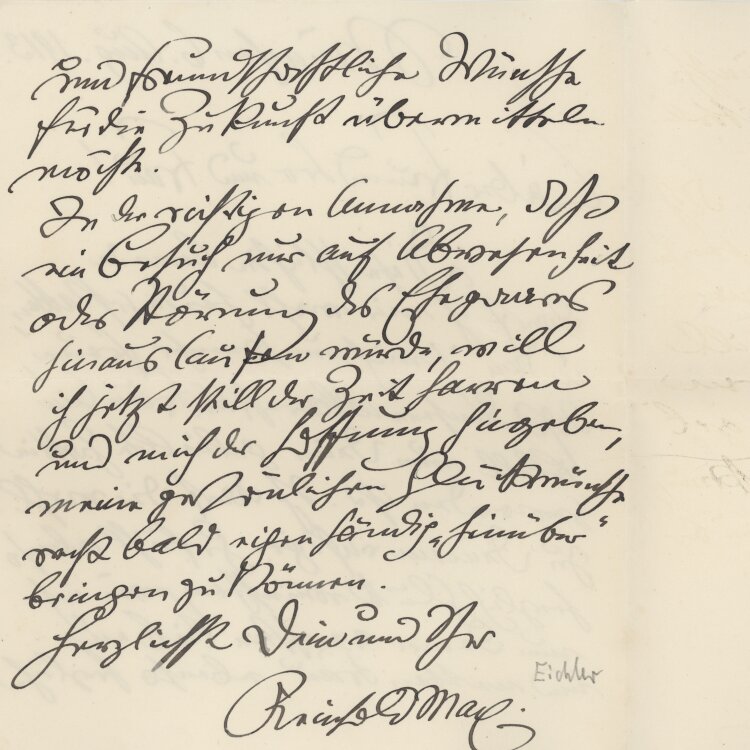 und freundschaftliche Wünsche
für die Zukunft übermitteln
möchte.
In der richtigen Annahme, daß
ein Besuch nur auf Abwesenheit
oder Störung des Ehepaares
hinauslaufen würde, will
ich jetzt still der Zeit harren
und mich der Hoffnung hingeben,
meine persönlichen Glückwünsche
recht bald eigenhändig „hinüber“
bringen zu können.
Herzlichst Dein und Ihr
Eichler
Reinhold Max.